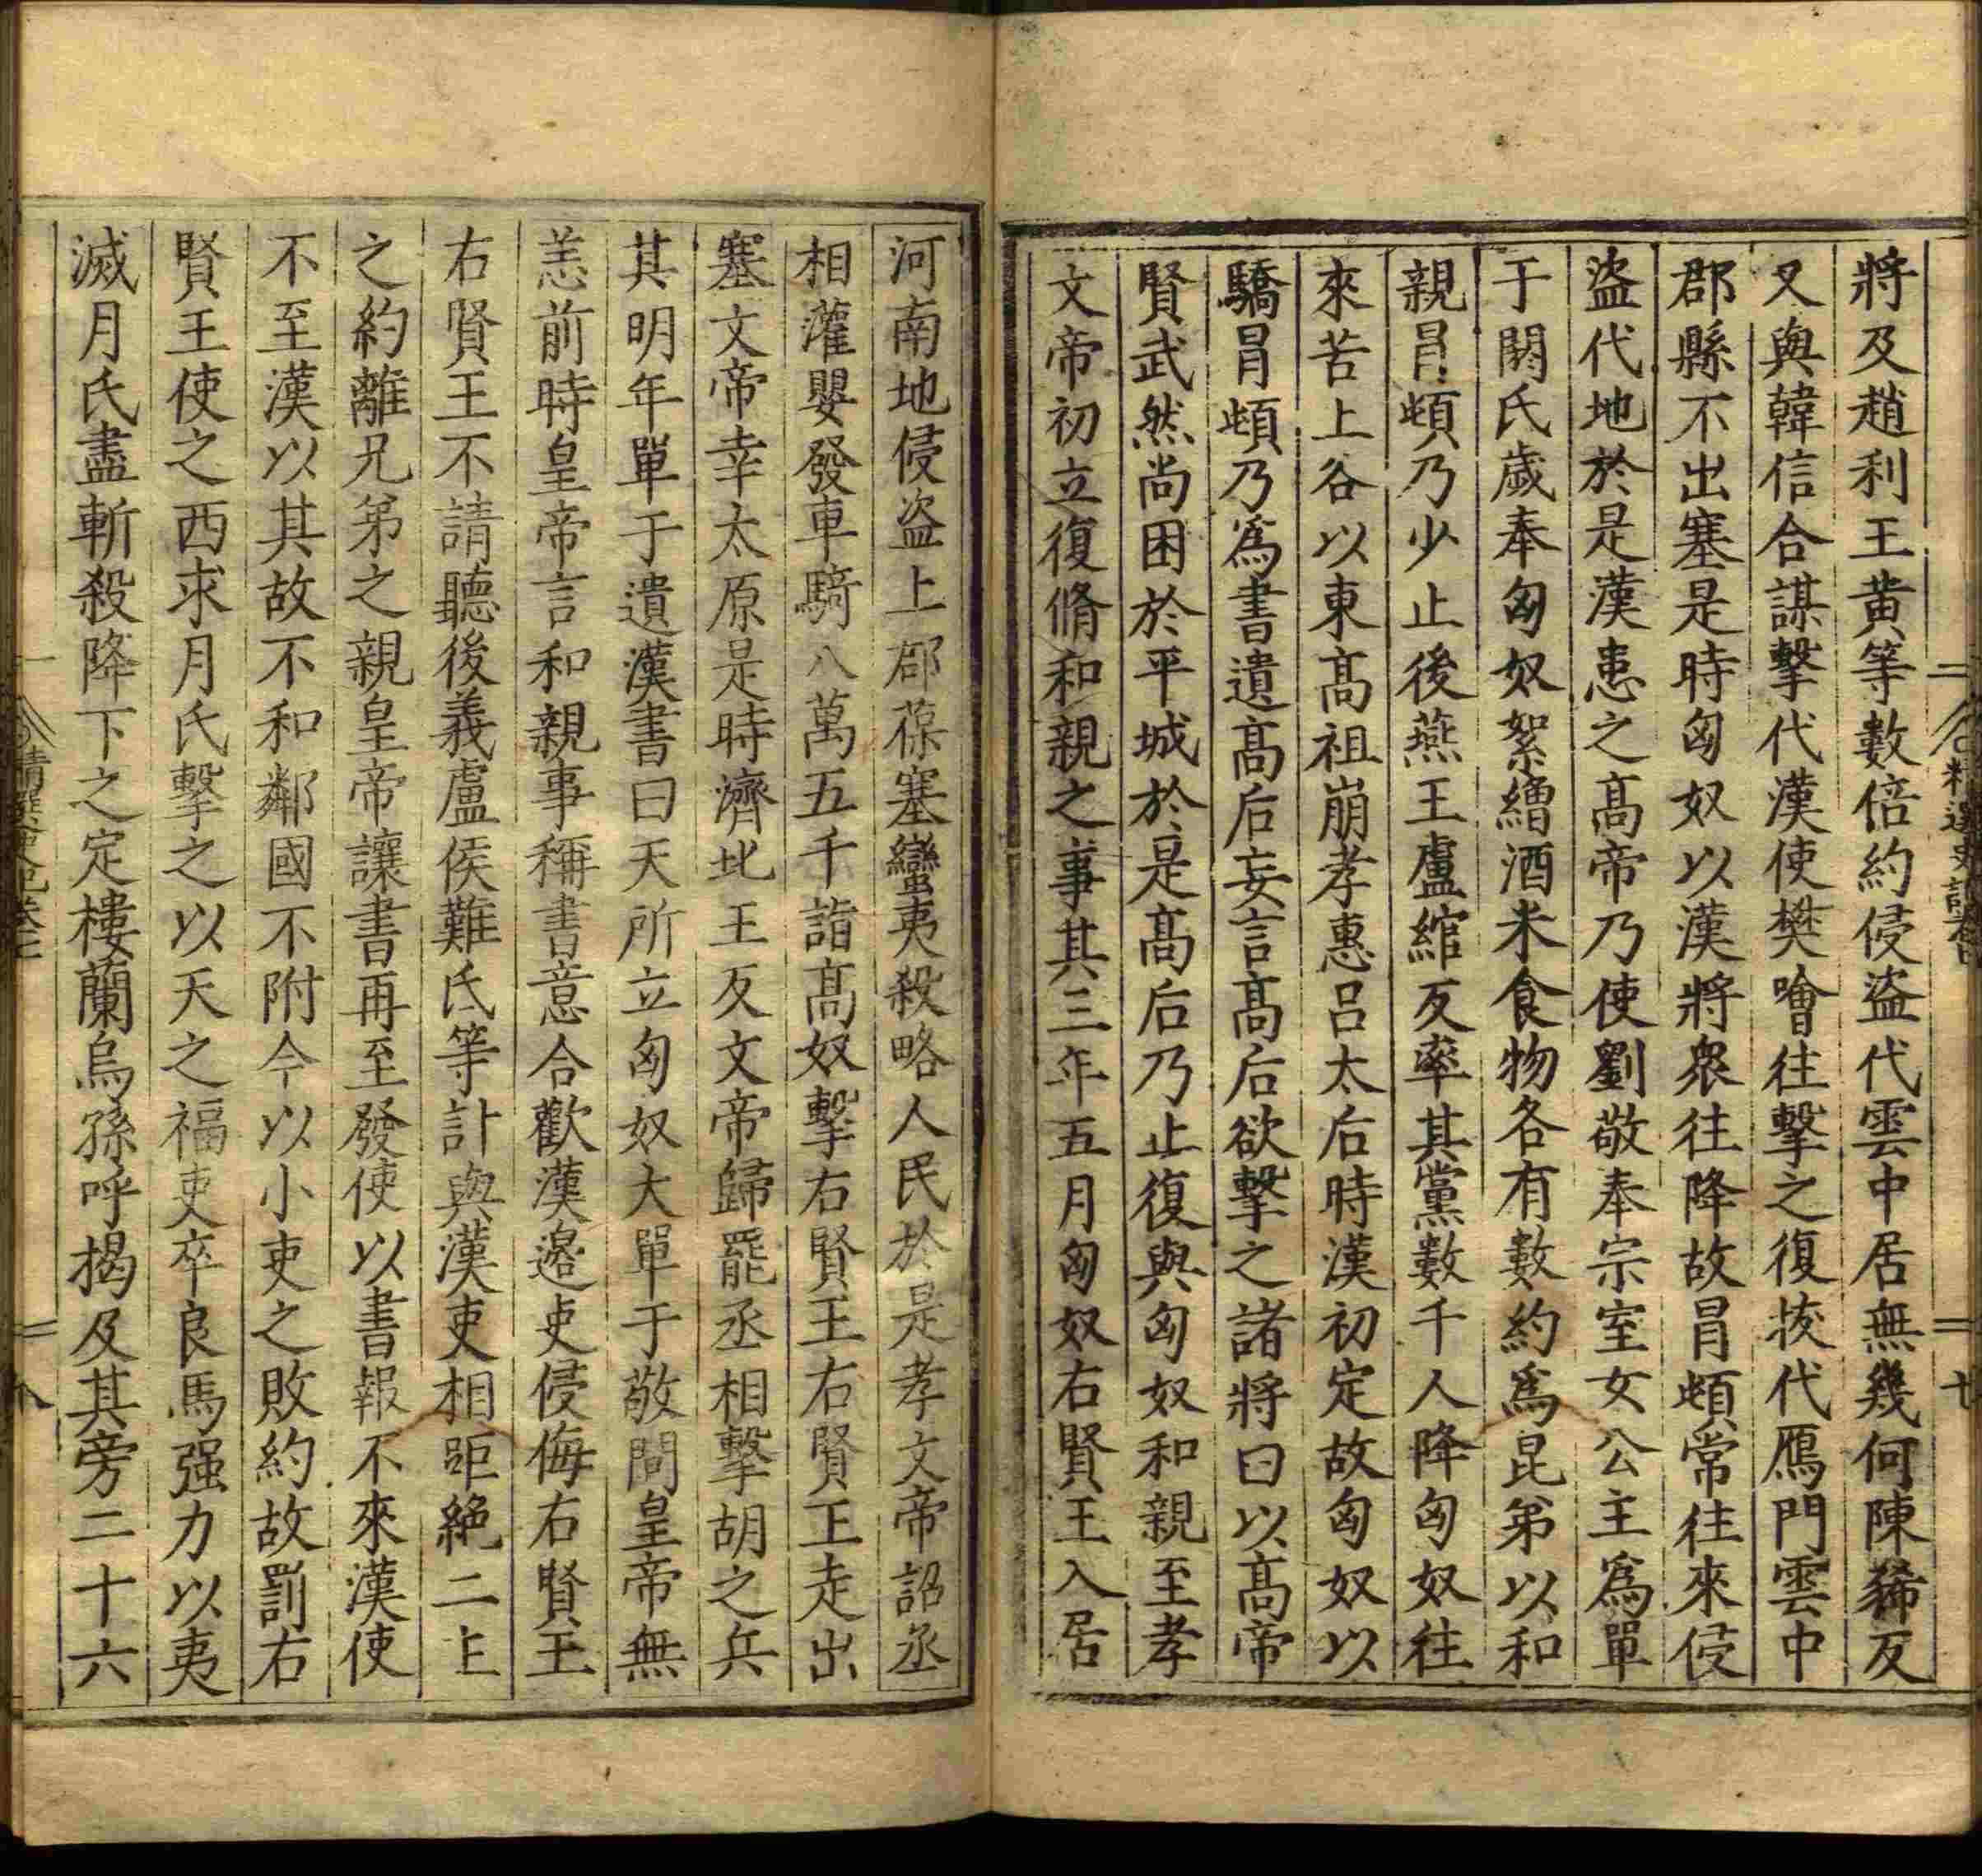 將及趙利王黄等數倍約侵盜代雲中居無幾何陳豨反
又與韓信合謀擊代漢使樊噲往擊之復拔代鴈門雲中
郡縣不出塞是時匈奴以漢將衆往降故冒頓常往來侵
盜代地於是漢患之高帝乃使劉敬奉宗室女公主爲單
于閼氏歲奉匈奴絮繒酒米食物各有數約爲昆弟以和
親冒頓乃少止後燕王盧綰反率其黨數千人降匈奴往
來苦上谷以東高祖崩孝惠呂太后時漢初定故匈奴以
驕冒頓乃爲書遺高后妄言高后欲擊之諸將曰以高帝
賢武然尚困於平城於是高后乃止復與匈奴和親至孝
文帝初立復脩和親之事其三年五月匈奴右賢王入居
河南地侵盜上郡葆塞蠻夷殺略人民於是孝文帝詔丞
相灌嬰發車騎八萬五千詣高奴擊右賢王右賢王走出
塞文帝幸太原是時濟北王反文帝歸罷丞相擊胡之兵
其明年單于遺漢書曰天所立匈奴大單于敬問皇帝無
恙前時皇帝言和親事稱書意合歡漢邊吏侵侮右賢王
右賢王不請聽後義盧侯難氏等計與漢吏相距絶二上
之約離兄弟之親皇帝讓書再至發使以書報不來漢使
不至漢以其故不和鄰國不附今以小吏之敗約故罰右
賢王使之西求月氏擊之以天之福吏卒良馬强力以夷
滅月氏盡斬殺降下之定樓蘭烏孫呼揭及其旁二十六